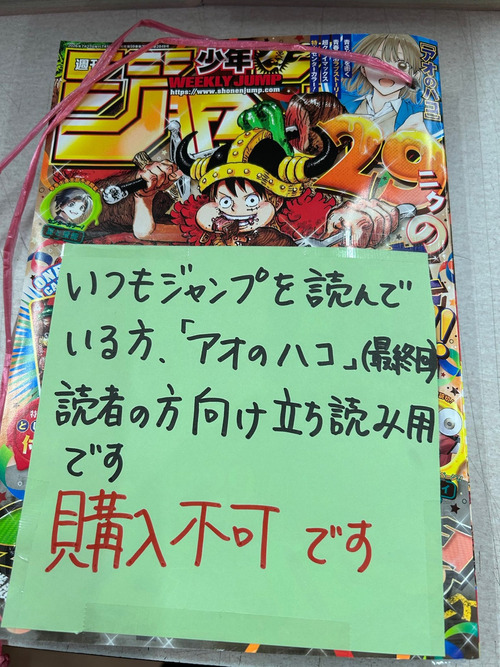 週刊
少年
ジャンプ
WEEKLY JUMP
https://www.shonenjump.com
アオのハコ
センターカラー!
29
ニクの
いつもジャンプを読んで
いる方、「アオのハコ」(最終回)
読者の方向け立ち読み用
です
購入不可です